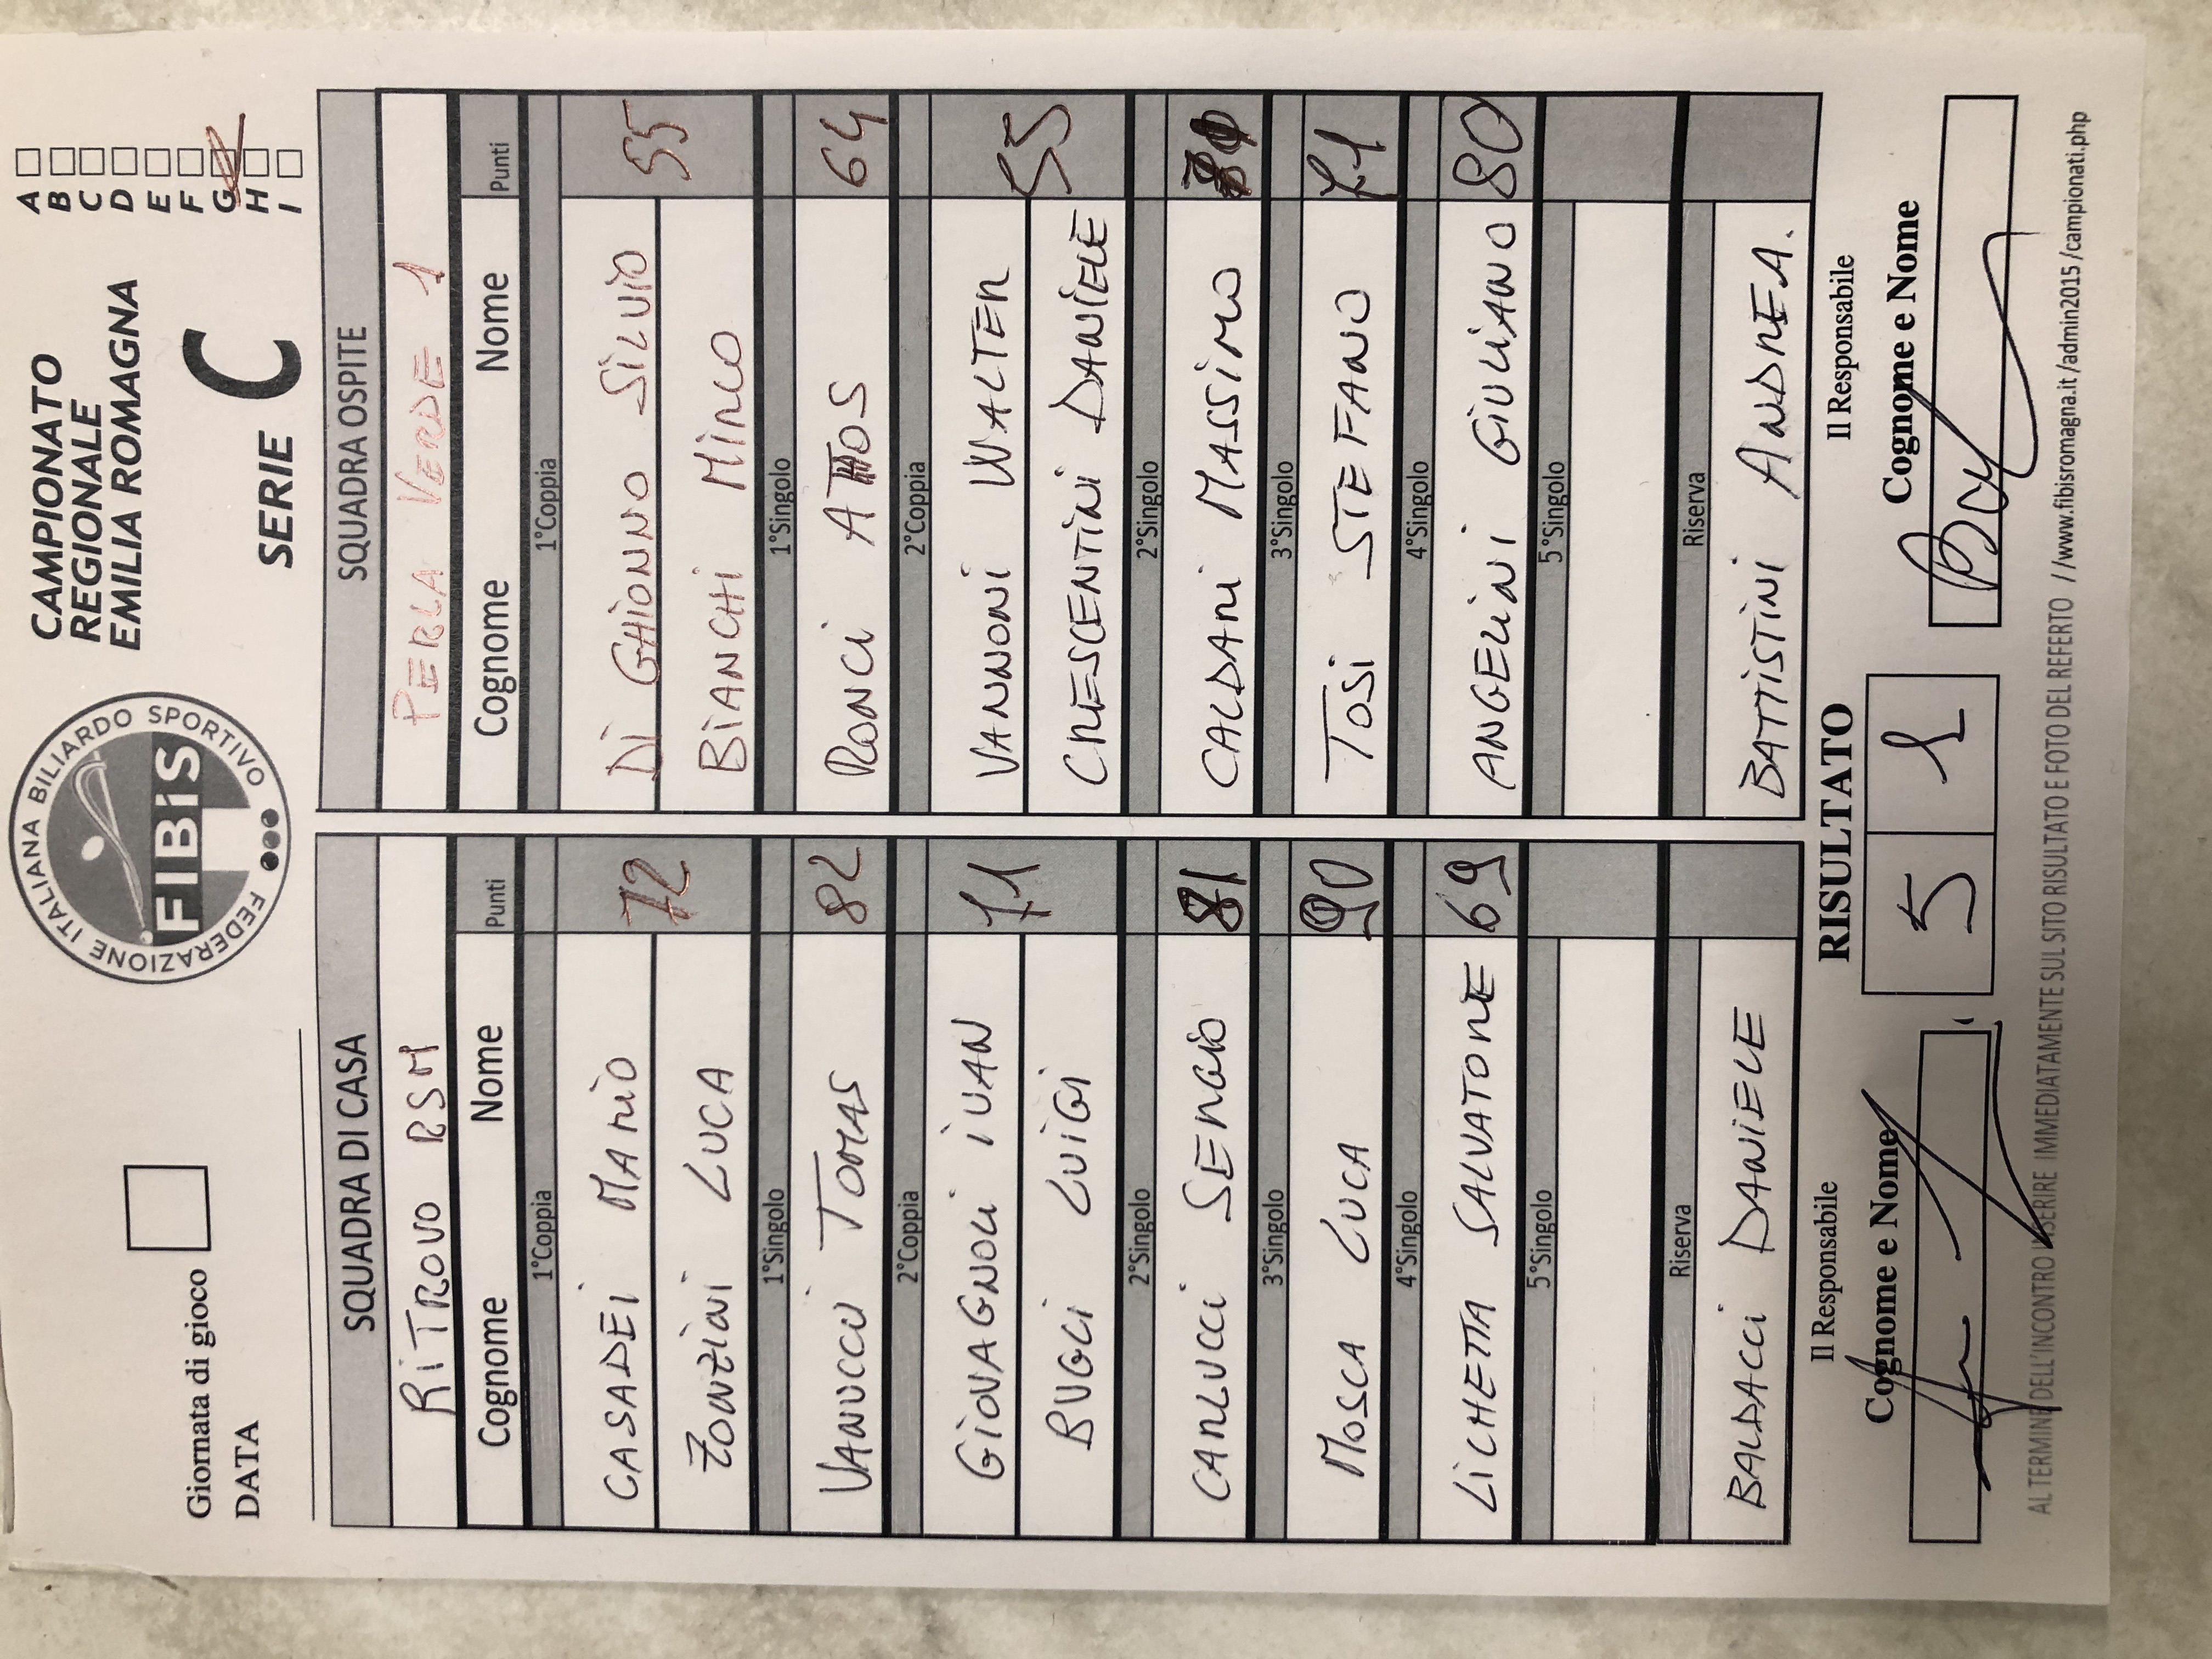 FEDERAZIONE ITALIANA BILIARDO SPORTIVO
FIBiS
CAMPIONATO
REGIONALE
EMILIA ROMAGNA
SERIE C
A
B
C
D
E
F
G
H
I
Giornata di gioco
DATA
SQUADRA DI CASA
RITROVO RSM
Cognome Nome Punti
1°Coppia
CASADEI MARIO 72
ZONZINI LUCA
1°Singolo
VANUCCI TOMAS 82
2°Coppia
GIOVAGNOLI IVAN 71
BUGLI LUIGI
2°Singolo
CARLUCCI SERGIO 81
3°Singolo
MOSCA LUCA 90
4°Singolo
LICHETTA SALVATORE 69
5°Singolo
Riserva
BALDACCI DANIELE
SQUADRA OSPITE
PERLA VERDE 1
Cognome Nome Punti
1°Coppia
DI GHIONNO SILVIO 55
BIANCHI MIRCO
1°Singolo
RONCI ATHOS 64
2°Coppia
VANNONI WALTER 55
CRESCENTINI DANIELE
2°Singolo
CALDARI MASSIMO
3°Singolo
TOSI STEFANO 71
4°Singolo
ANGELINI GIULIANO 80
5°Singolo
Riserva
BATTISTINI ANDREA.
Il Responsabile
Cognome e Nome
RISULTATO
5 1
Il Responsabile
Cognome e Nome
AL TERMINE DELL'INCONTRO INSERIRE IMMEDIATAMENTE SUL SITO RISULTATO E FOTO DEL REFERTO //www.fibisromagna.it/admin2015/campionati.php